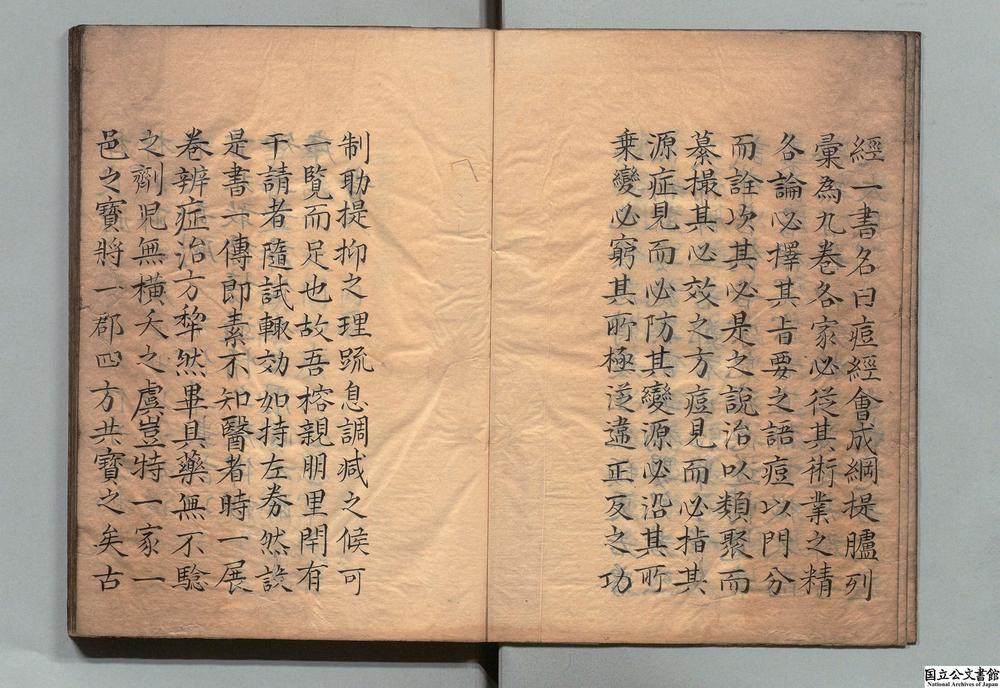 經一書名曰痘經會成綱提臚列
彙為九卷各家必從其術業之精
各論必擇其旨要之語痘以門分
而詮次其必是之說治以類聚而
纂撮其必效之方痘見而必指其
源症見而必防其變源必沿其所
乗變必窮其所極逆違正反之功
制助提抑之理䟽息調減之候可
一覽而足也故吾榕親朋里閈有
干請者隨試輙効如持左券然設
是書一傳即素不知醫者時一展
卷辨症治方犂然畢具藥無不騐
之劑児無橫夭之虞豈特一家一
邑之寶將一郡四方共寶之矣古
国立公文書館
National Archives of Japan